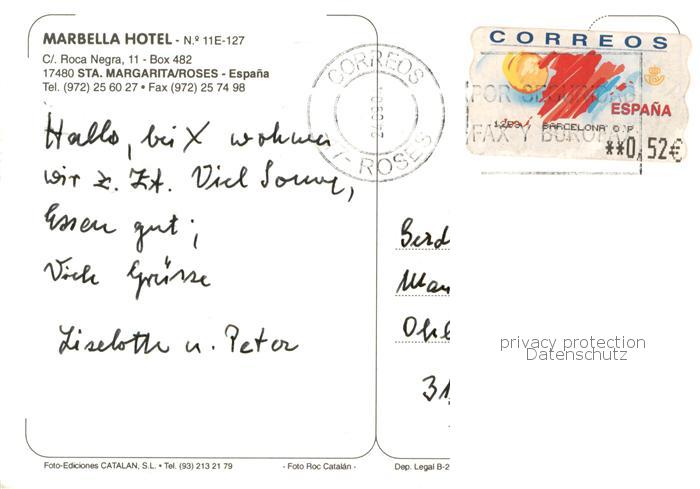 MARBELLA HOTEL - N.º 11E-127
C/. Roca Negra, 11 - Box 482
17480 STA. MARGARITA/ROSES - España
Tel. (972) 25 60 27 • Fax (972) 25 74 98
Hallo, bei X wohnen
wir z. Zt. Viel Sonne,
Essen gut;
Viele Grüsse
Liselotte u. Peter
CORREOS
ROSES
CORREOS
POR SEGURIDAD
ESPAÑA
BARCELONA O.P.
FAX Y BUROFAX
**0,52€
Gerd
Man
Ohl
31
privacy protection
Datenschutz
Foto-Ediciones CATALAN, S.L. • Tel. (93) 213 21 79
- Foto Roc Catalán -
Dep. Legal B-2